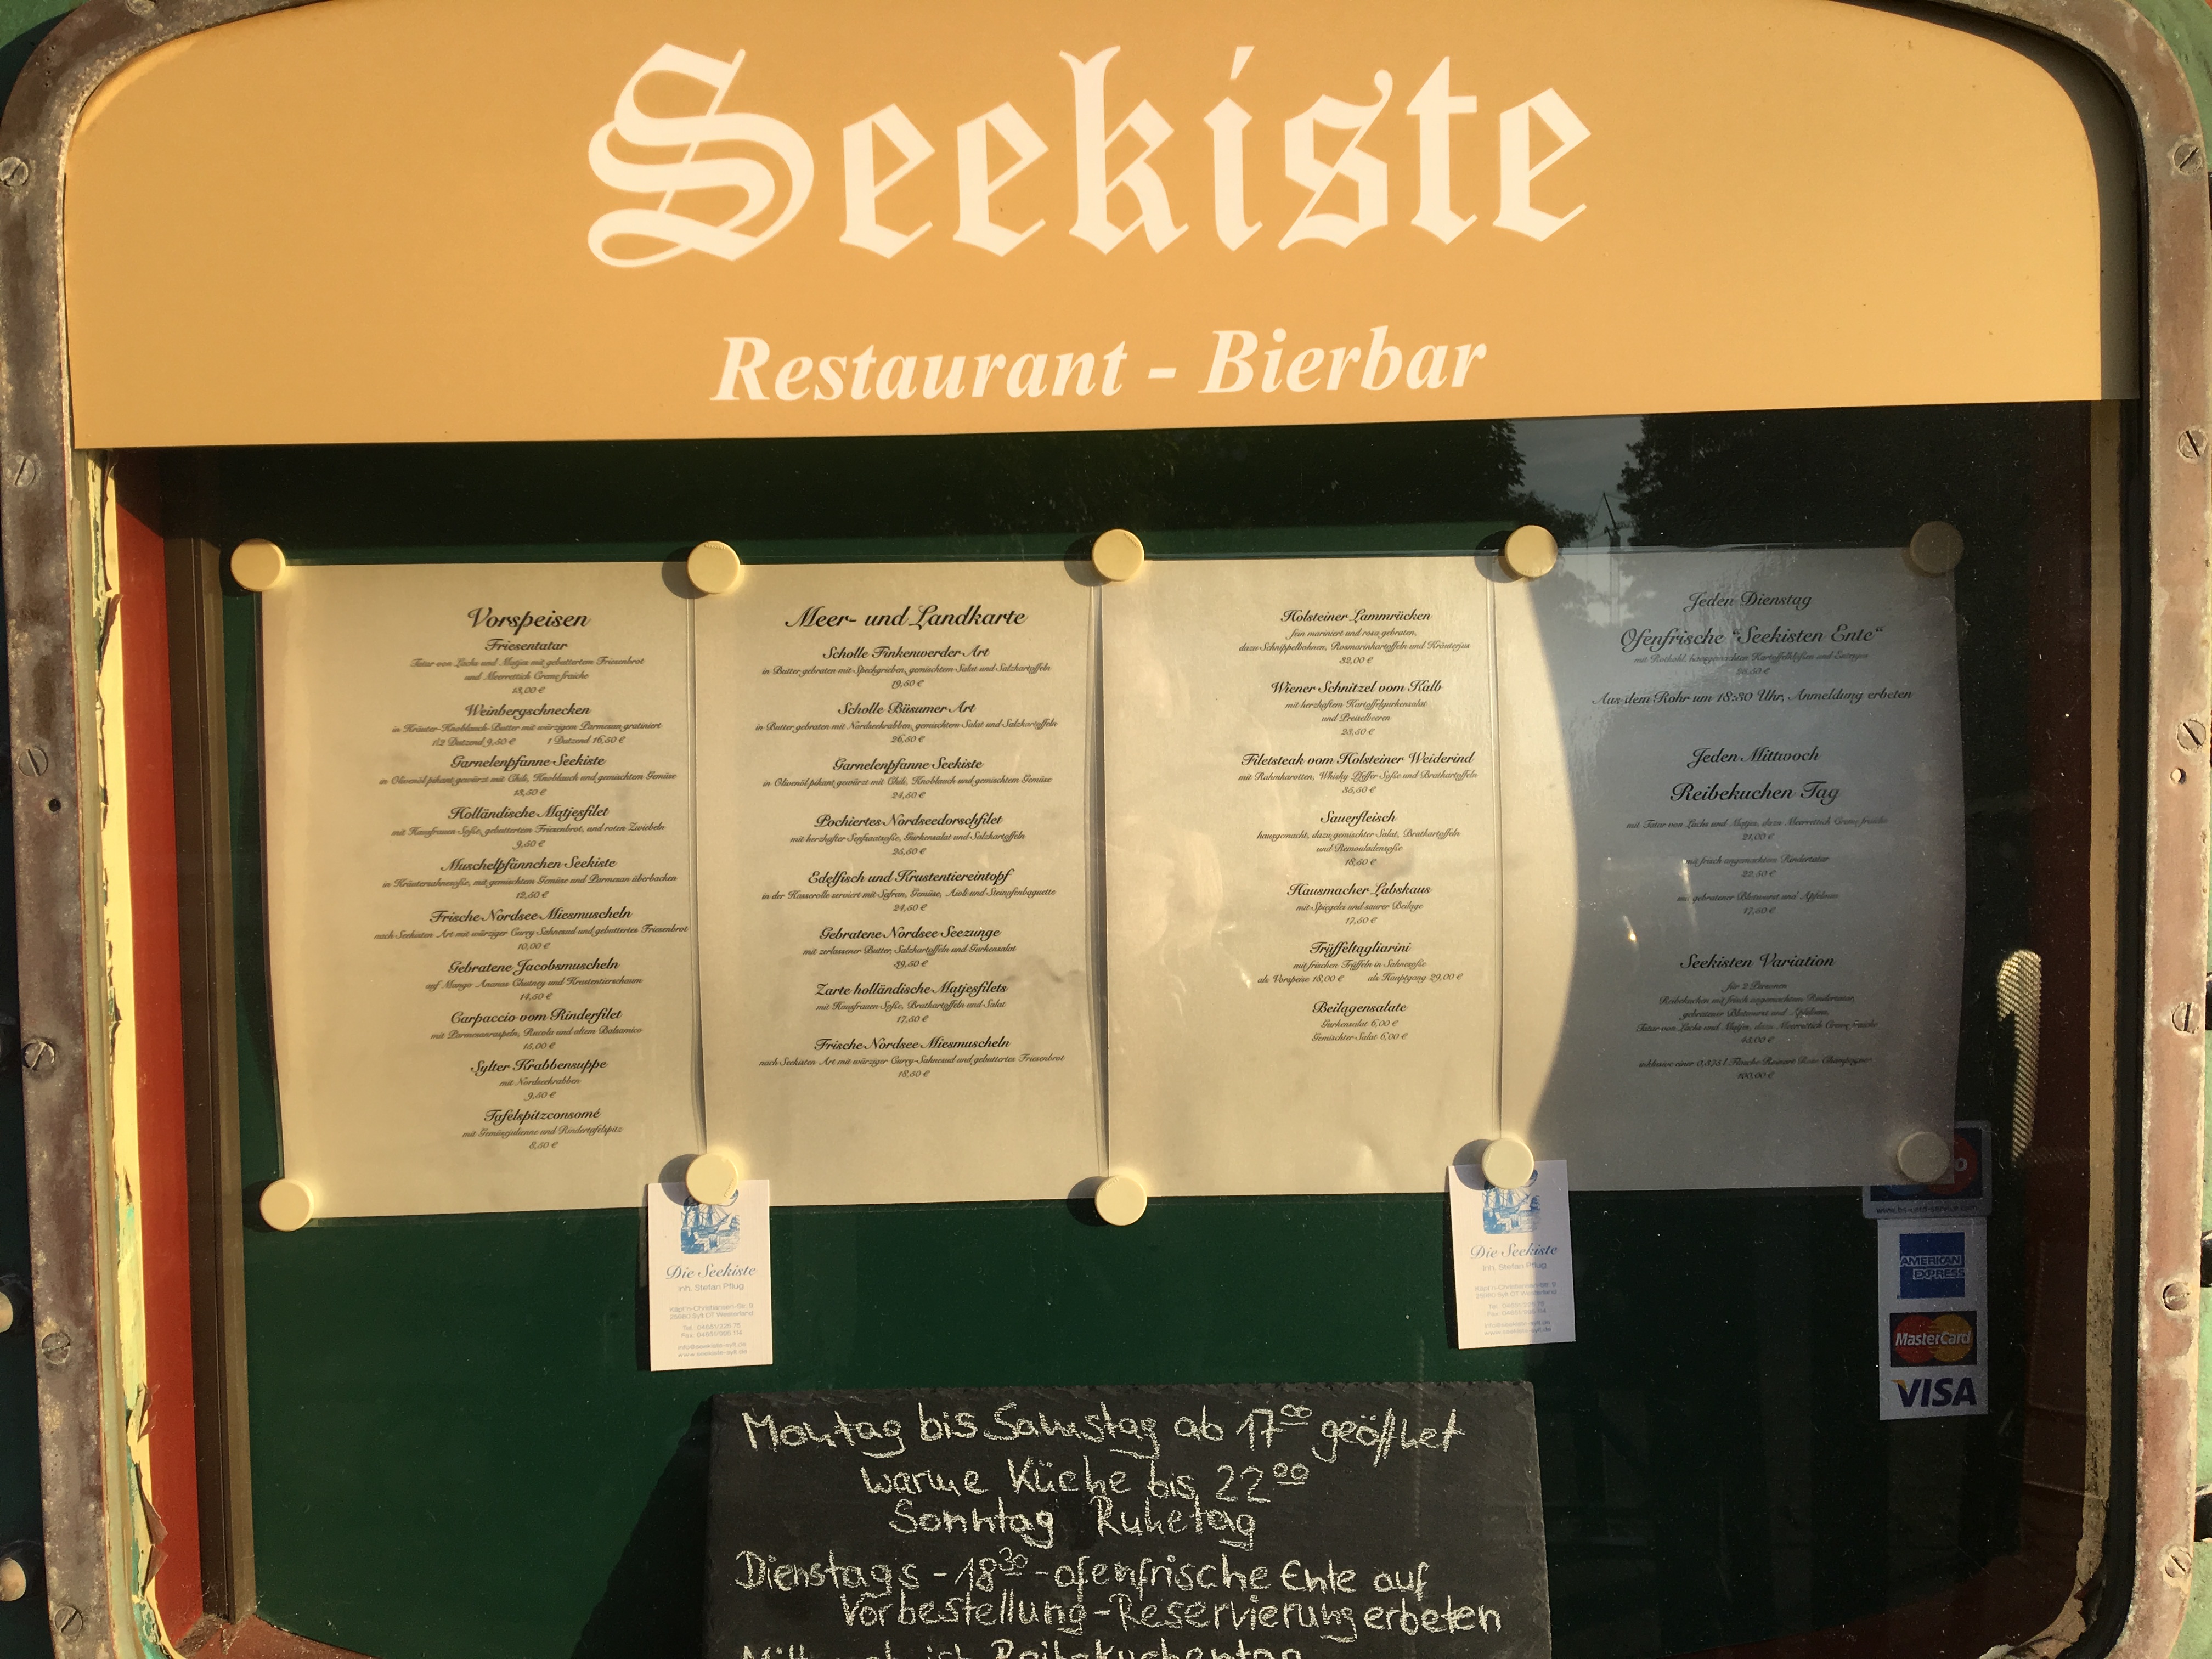 Seekiste
Restaurant - Bierbar
Vorspeisen
Friesentatar
Tatar von Lachs und Matjes mit gebuttertem Friesenbrot
und Meerrettich Creme fraiche
13,00 €
Weinbergschnecken
in Kräuter-Knoblauch-Butter mit würzigem Parmesan gratiniert
1/2 Dutzend 9,50 € 1 Dutzend 16,50 €
Garnelenpfanne Seekiste
in Olivenöl pikant gewürzt mit Chili, Knoblauch und gemischtem Gemüse
13,50 €
Holländische Matjesfilet
mit Hausfrauen-Soße, gebuttertem Friesenbrot, und roten Zwiebeln
9,50 €
Muschelpfännchen Seekiste
in Kräutersahnesoße, mit gemischtem Gemüse und Parmesan überbacken
12,50 €
Frische Nordsee-Miesmuscheln
nach Seekisten Art mit würziger Curry Sahnesud und gebuttertes Friesenbrot
10,00 €
Gebratene Jacobsmuscheln
auf Mango Ananas Chutney und Krustentierschaum
14,50 €
Carpaccio vom Rinderfilet
mit Parmesanraspeln, Rucola und altem Balsamico
15,00 €
Sylter Krabbensuppe
mit Nordseekrabben
9,50 €
Tafelspitzconsomé
mit Gemüsejulienne und Rindertafelspitz
8,50 €
Meer- und Landkarte
Scholle Finkenwerder Art
in Butter gebraten mit Speckgrieben, gemischtem Salat und Salzkartoffeln
19,50 €
Scholle Büsumer Art
in Butter gebraten mit Nordseekrabben, gemischtem Salat und Salzkartoffeln
26,50 €
Garnelenpfanne Seekiste
in Olivenöl pikant gewürzt mit Chili, Knoblauch und gemischtem Gemüse
24,50 €
Pochiertes Nordseedorschfilet
mit herzhafter Senfsaatsoße, Gurkensalat und Salzkartoffeln
25,50 €
Edelfisch und Krustentiereintopf
in der Kasserolle serviert mit Safran, Gemüse, Aioli und Steinofenbaguette
24,50 €
Gebratene Nordsee Seezunge
mit zerlassener Butter, Salzkartoffeln und Gurkensalat
39,50 €
Zarte holländische Matjesfilets
mit Hausfrauen Soße, Bratkartoffeln und Salat
17,50 €
Frische Nordsee Miesmuscheln
nach Seekisten Art mit würziger Curry-Sahnesud und gebuttertes Friesenbrot
18,50 €
Holsteiner Lammrücken
fein mariniert und rosa gebraten,
dazu Schnippelbohnen, Rosmarinkartoffeln und Kräuterjus
32,00 €
Wiener Schnitzel vom Kalb
mit herzhaftem Kartoffelgurkensalat
und Preiselbeeren
23,50 €
Filetsteak vom Holsteiner Weiderind
mit Rahmkarotten, Whisky Pfeffer Soße und Bratkartoffeln
35,50 €
Sauerfleisch
hausgemacht, dazu gemischter Salat, Bratkartoffeln
und Remouladensoße
18,50 €
Hausmacher Labskaus
mit Spiegelei und saurer Beilage
17,50 €
Trüffeltagliarini
mit frischen Trüffeln in Sahnesoße
als Vorspeise 18,00 € als Hauptgang 29,00 €
Beilagensalate
Gurkensalat 6,00 €
Gemischter Salat 6,00 €
Jeden Dienstag
Ofenfrische "Seekisten Ente"
mit Rotkohl, hausgemachten Kartoffelklößen und Entenjus
Aus dem Rohr um 18:30 Uhr, Anmeldung erbeten
Jeden Mittwoch
Reibekuchen Tag
mit Tatar von Lachs und Matjes, dazu Meerrettich Creme fraiche
21,00 €
mit frisch angemachtem Rindertatar
22,50 €
mit gebratener Blutwurst und Apfelmus
17,50 €
Seekisten Variation
für 2 Personen
Reibekuchen mit frisch angemachtem Rindertatar,
gebratener Blutwurst und Apfelmus,
Tatar von Lachs und Matjes, dazu Meerrettich Creme fraiche
45,00 €
inklusive einer 0,375 l Flasche Ruinart Rose Champagner
100,00 €
Die Seekiste
Inh. Stefan Pflug
Käpt'n-Christiansen-Str. 9
25980 Sylt OT Westerland
Tel. 04651/225 75
Fax. 04651/995 114
info@seekiste-sylt.de
www.seekiste-sylt.de
Die Seekiste
Inh. Stefan Pflug
Käpt'n-Christiansen-Str. 9
25980 Sylt OT Westerland
Tel. 04651/225 75
Fax. 04651/995 114
info@seekiste-sylt.de
www.seekiste-sylt.de
AMERICAN
EXPRESS
MasterCard
VISA
Montag bis Samstag ab 17⁰⁰ geöffnet
warme Küche bis 22⁰⁰
Sonntag Ruhetag
Dienstags - 18³⁰ - ofenfrische Ente auf
Vorbestellung - Reservierung erbeten
Mittwoch ist Reibekuchentag